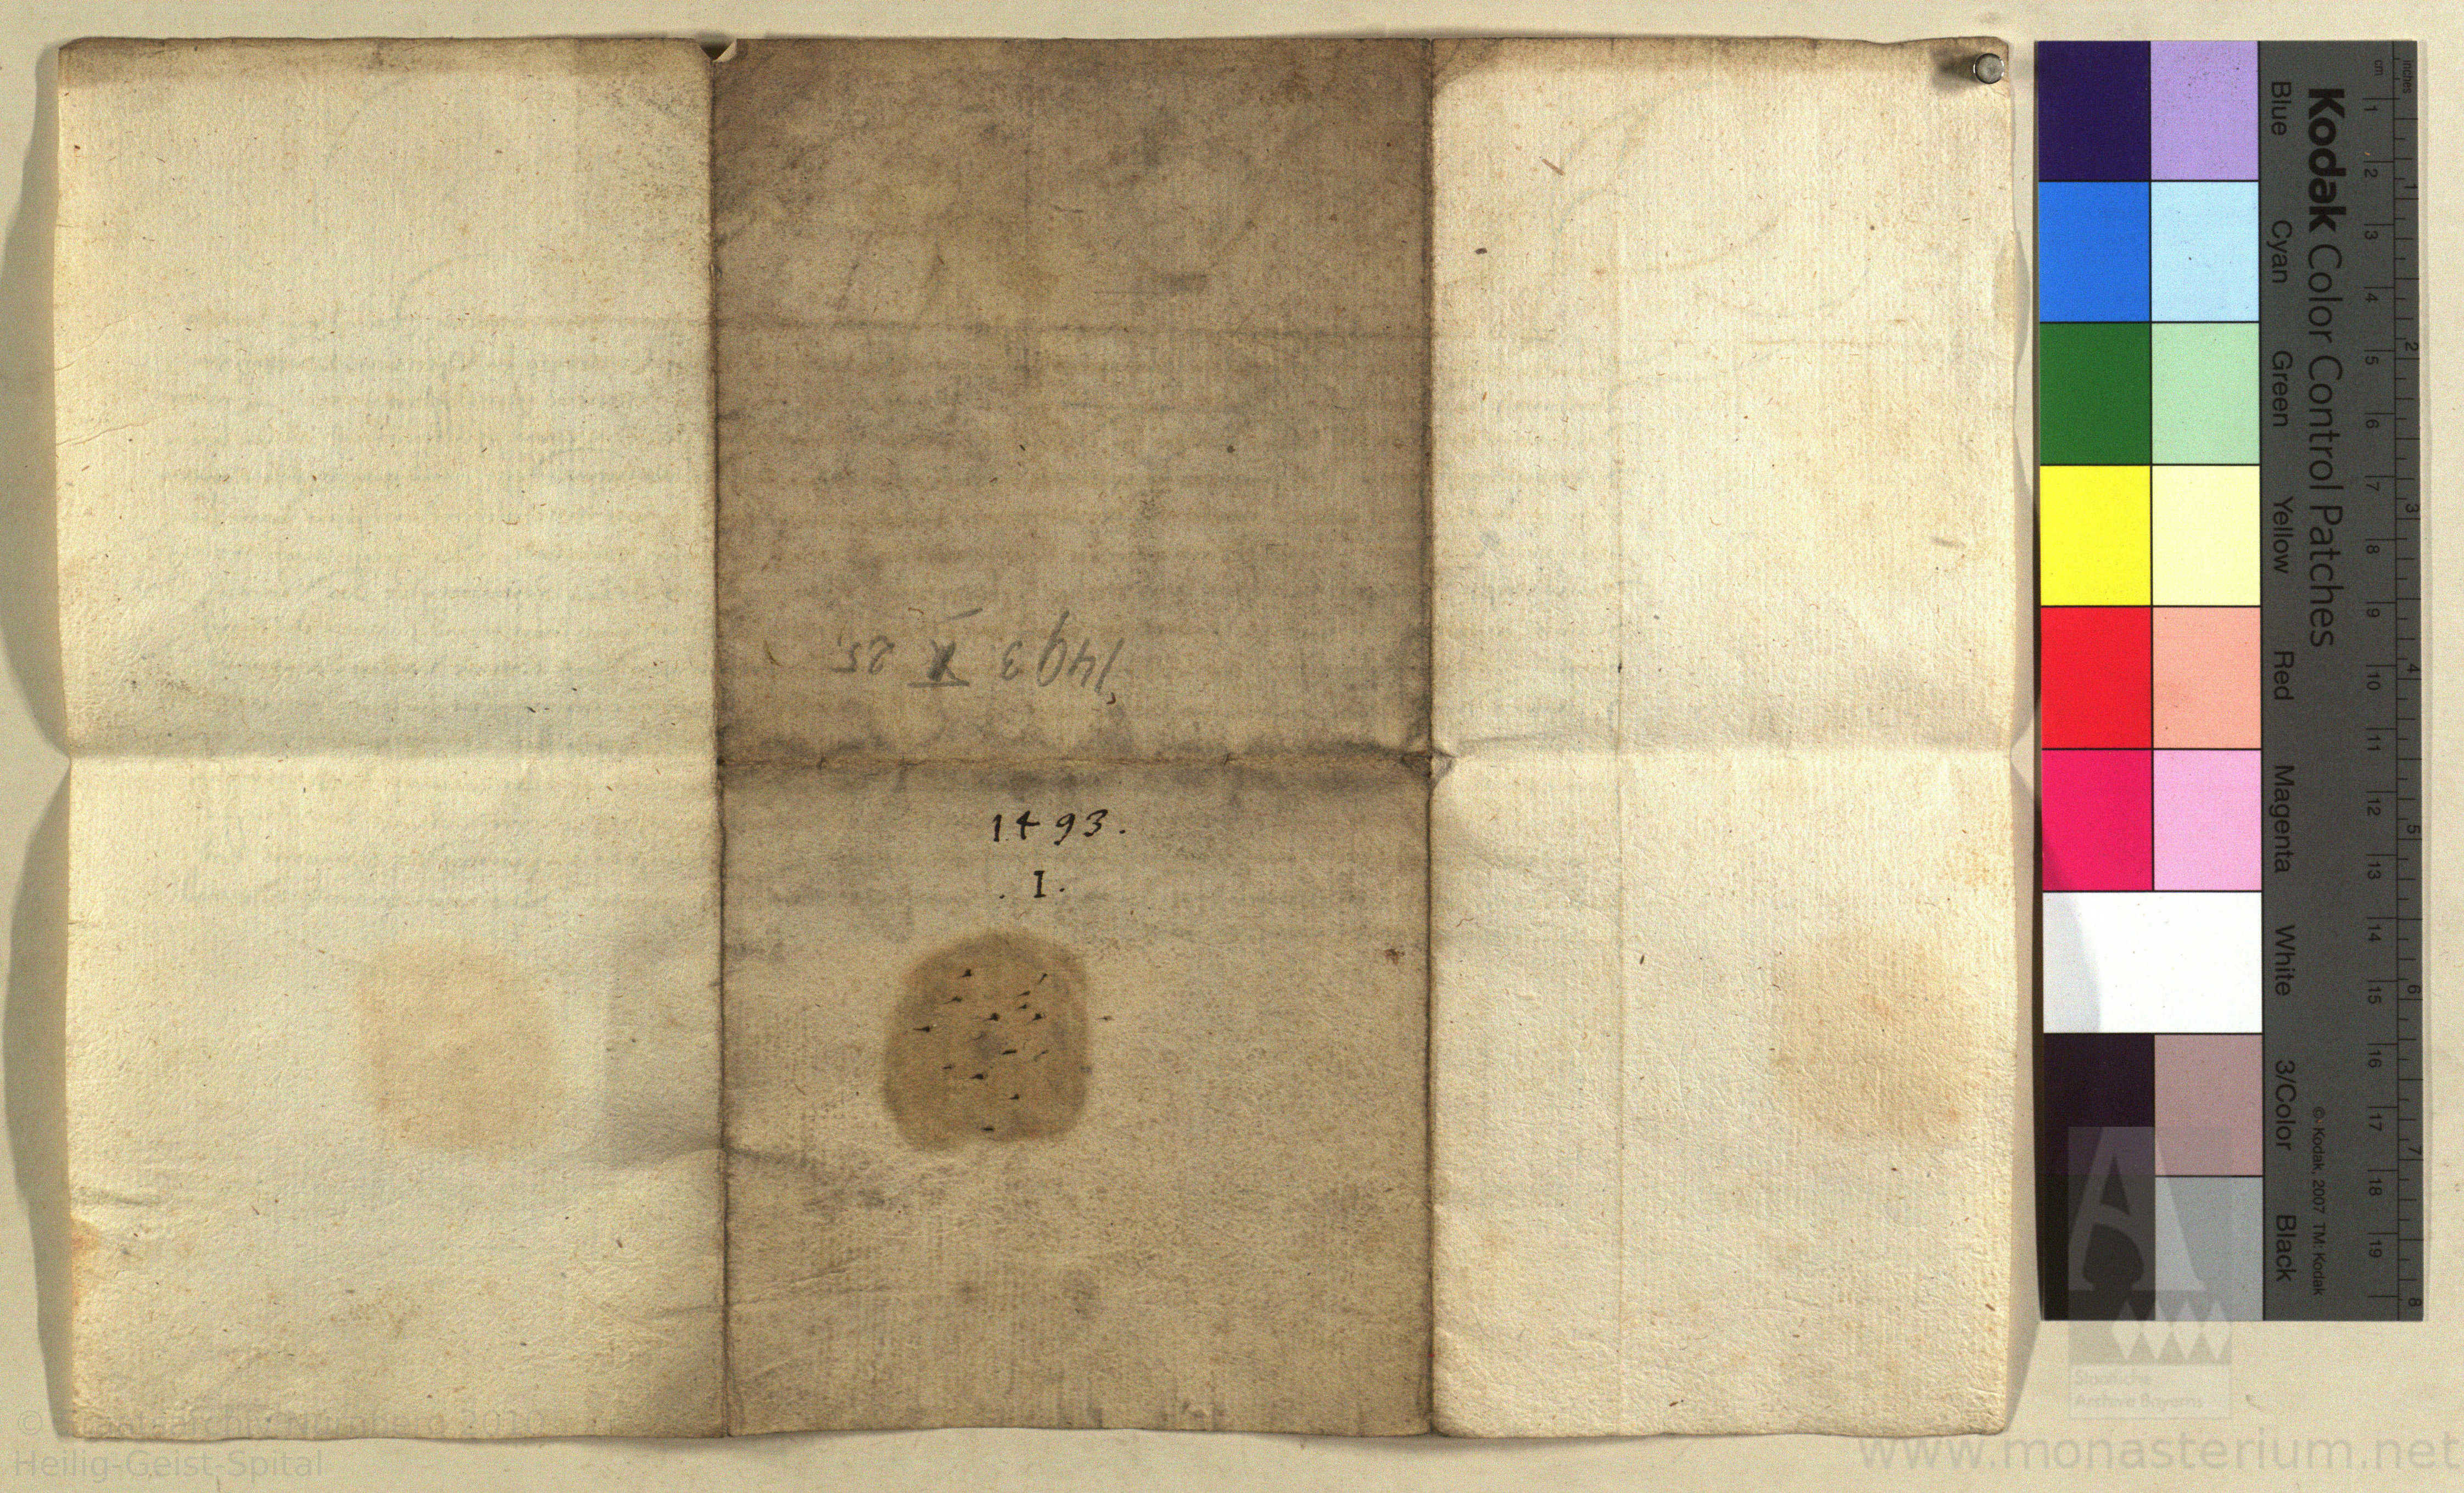 1493 X 25.
1493.
. I .
Kodak Color Control Patches
Blue Cyan Green Yellow Red Magenta White 3/Color Black
© Kodak, 2007 TM: Kodak
cm 1 2 3 4 5 6 7 8 9 10 11 12 13 14 15 16 17 18 19
inches 1 2 3 4 5 6 7 8
Staatliche
Archive Bayerns
© Staatsarchiv Nürnberg 2010
Heilig-Geist-Spital
www.monasterium.net